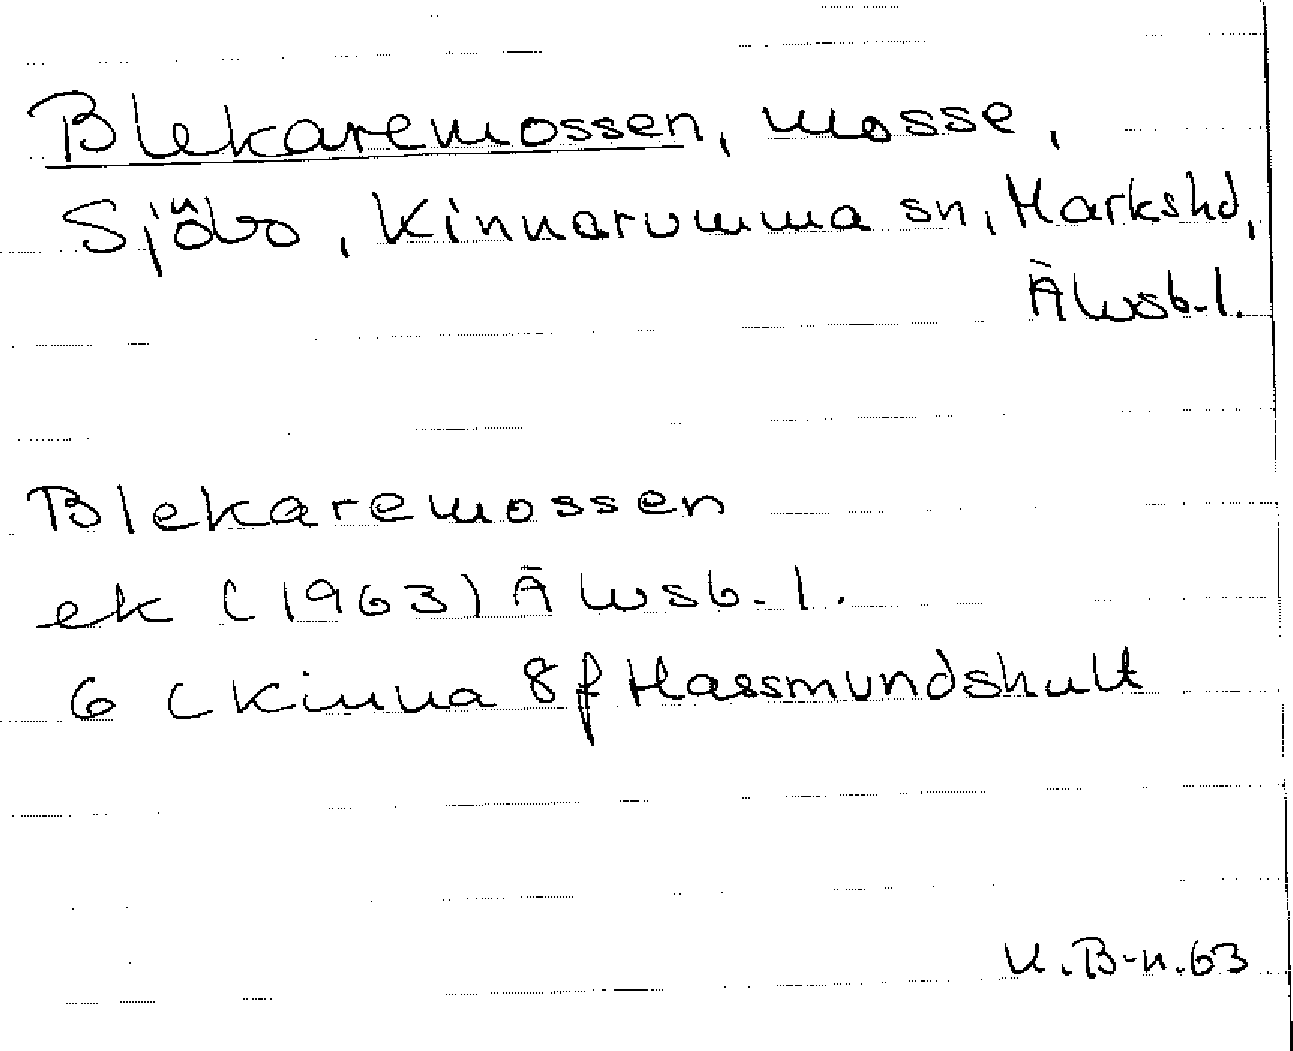 Blekaremossen, mosse,
Sjöbo, Kinnarumma sn, Markshd,
Älvsb.l.
Blekaremossen
ek (1963) Älvsb.l.
6 (Kinna 8f Hassmundshult
U.B-n.63